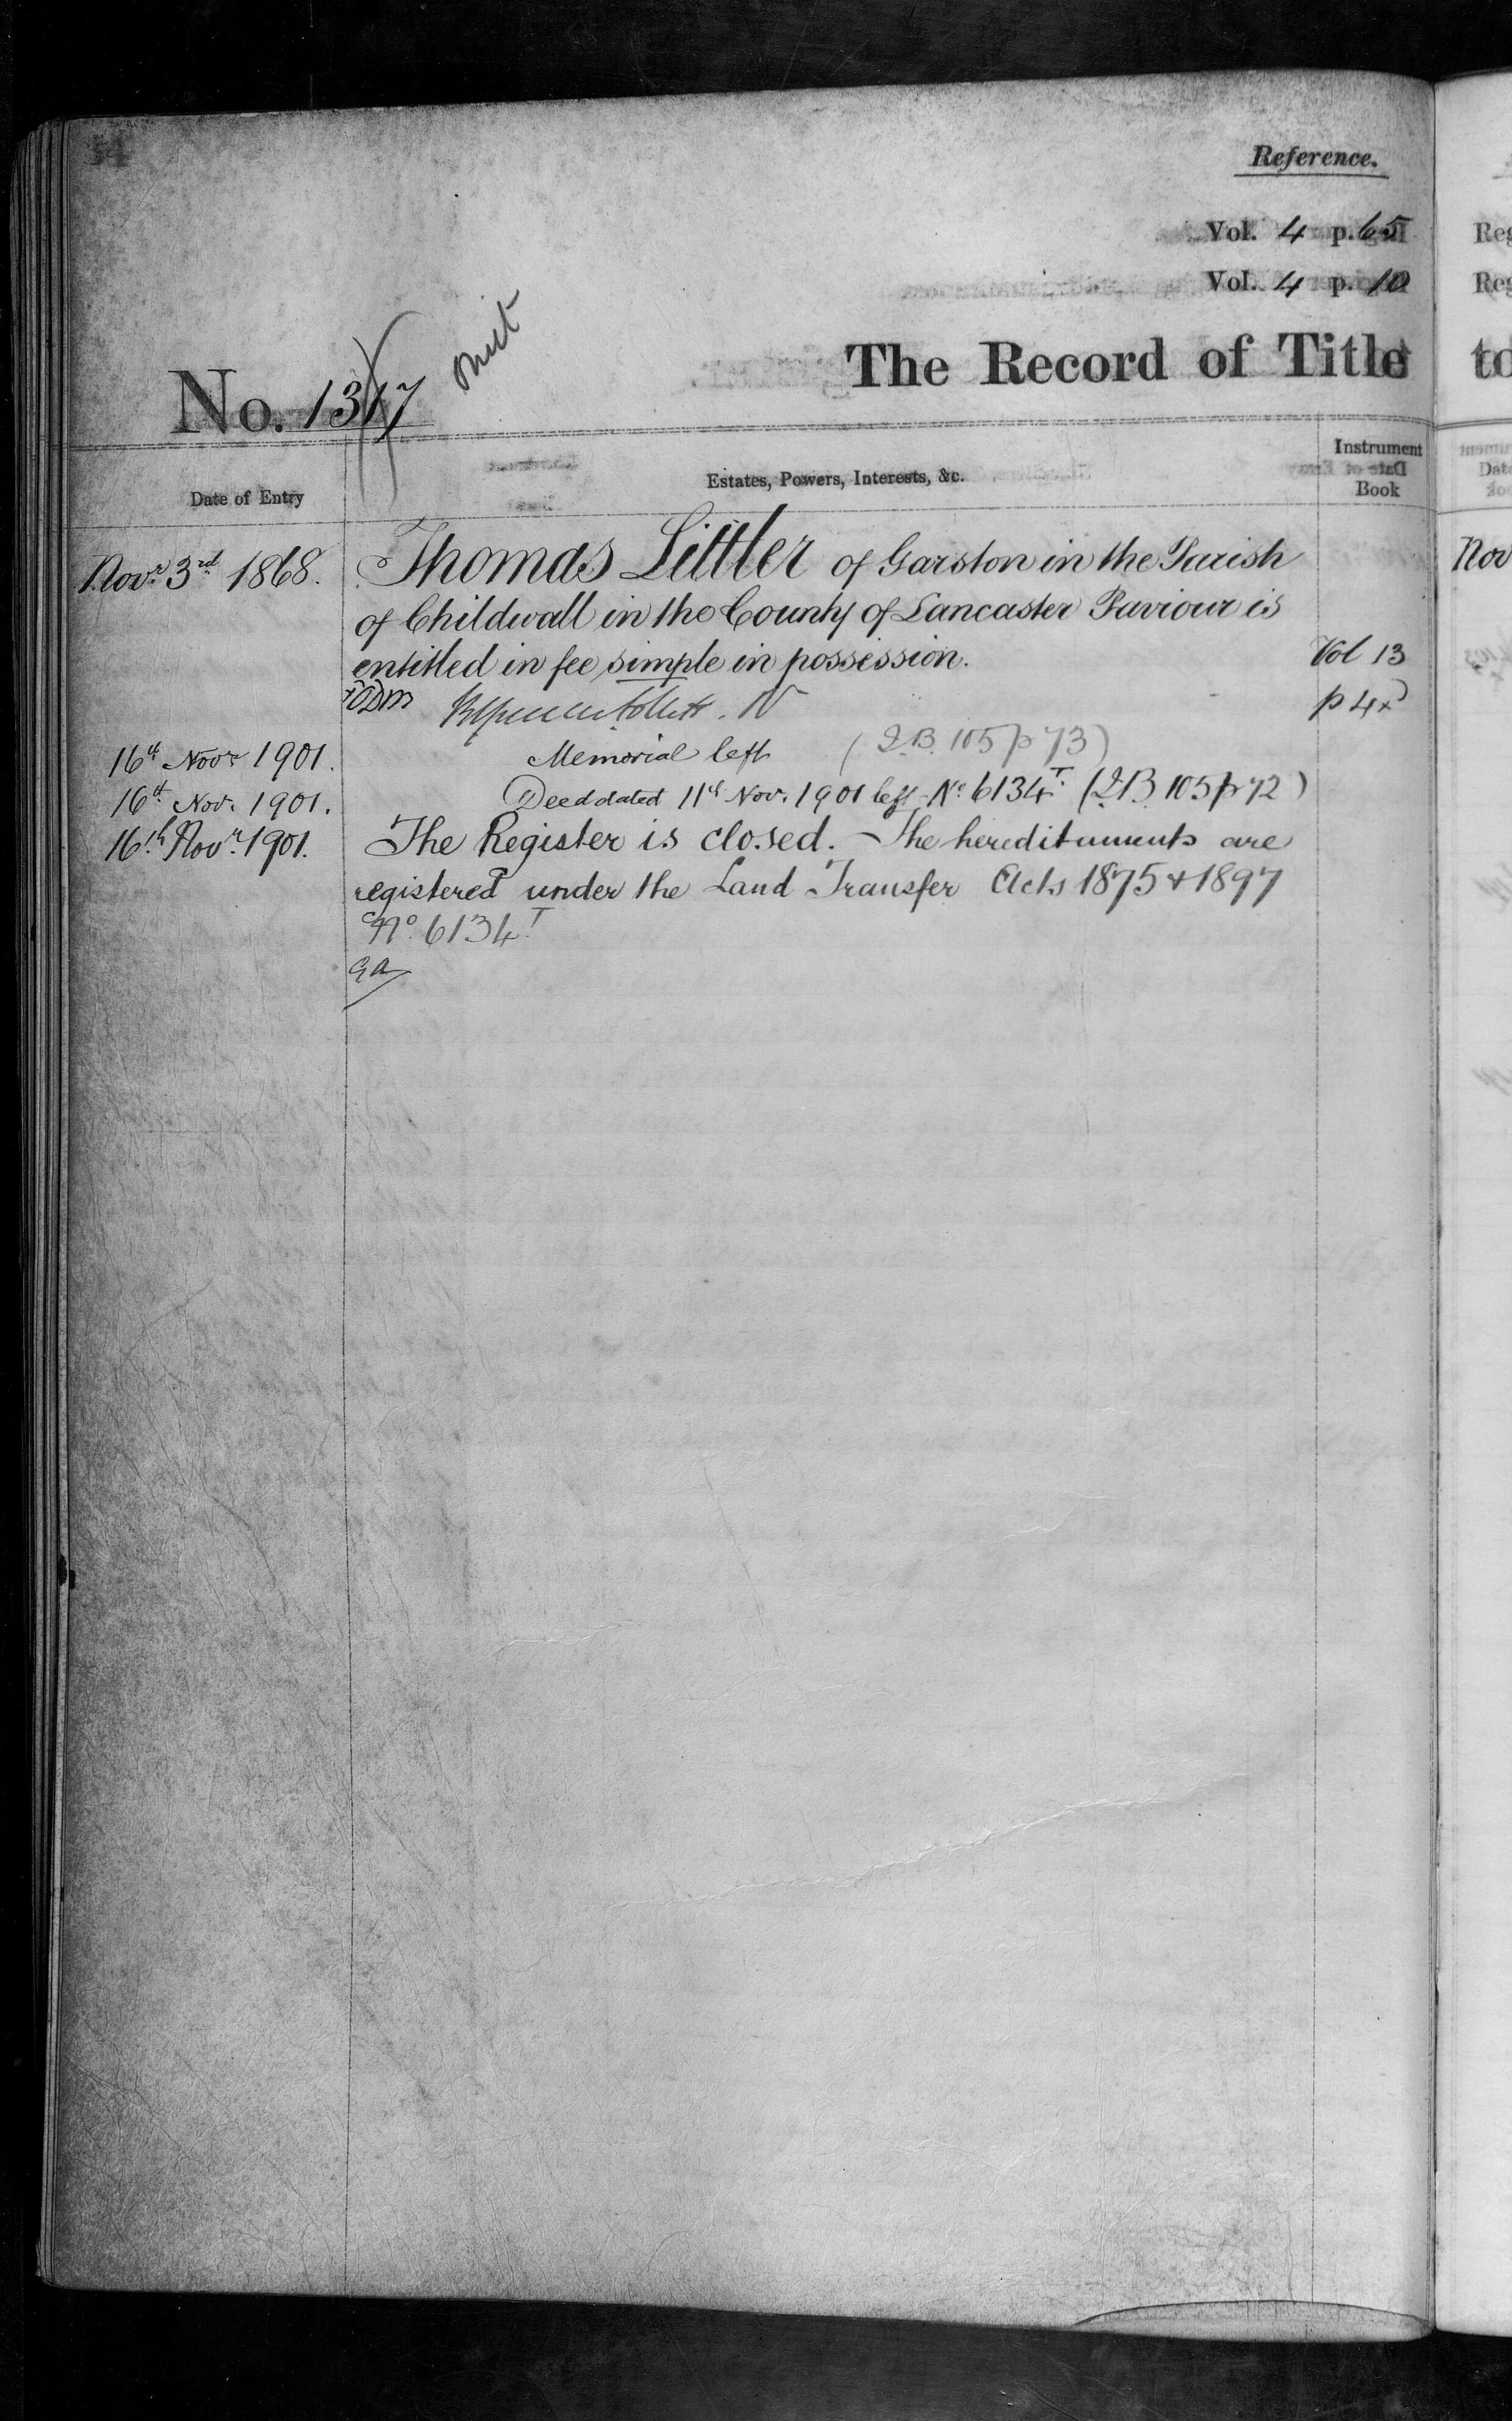 54
Reference.
Vol. 4 p. 65
Vol. 4 p. 10
omit
The Record of Title
No. 1317
Date of Entry
Estates, Powers, Interests, &c.
Instrument
Book
Novr. 3rd 1868. Thomas Littler of Garston in the Parish
of Childwall in the County of Lancaster Paviour is
entitled in fee simple in possession. Vol 13
p 4
16th Novr 1901. Memorial left (I.B. 105 p 73)
16th Nov. 1901. Deed dated 11th Nov. 1901 left No. 6134T (I.B. 105 p 72)
16th Novr. 1901. The Register is closed. The hereditaments are
registered under the Land Transfer Acts 1875 & 1897
No. 6134T
GA
Reg
Reg
to
Nov